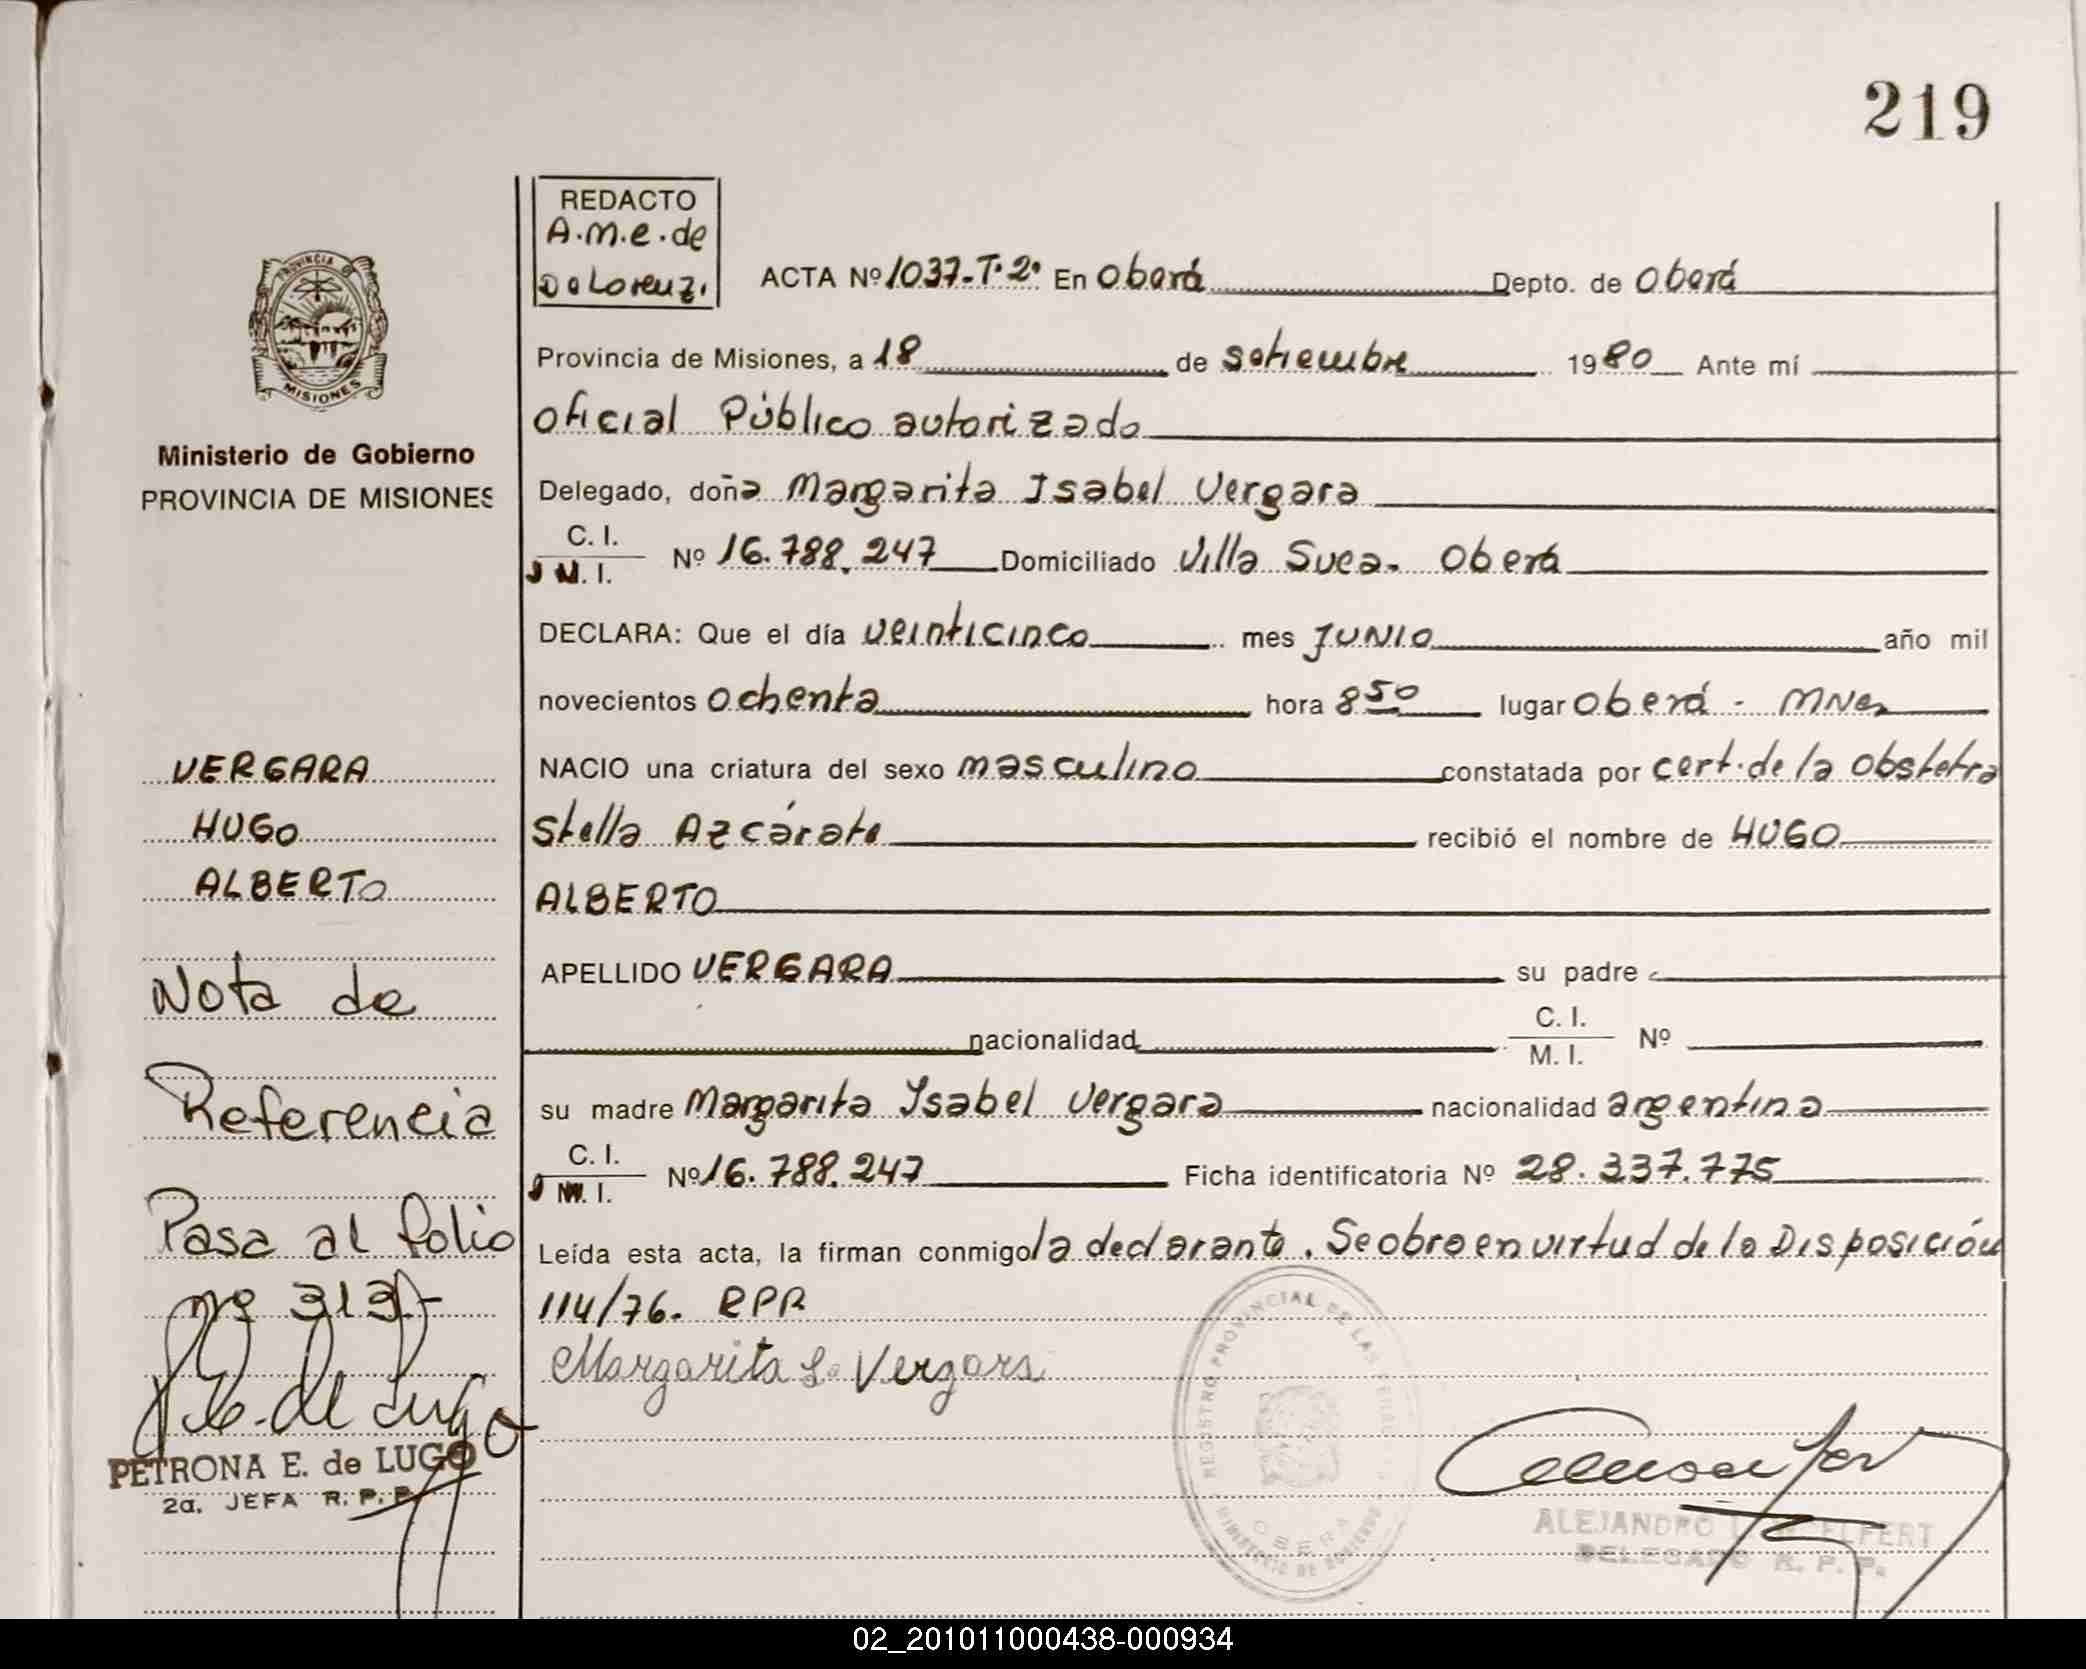 219
REDACTO
A.M.e.de
De Lorenzi
ACTA Nº 1037-T·2º En Oberá Depto. de Oberá
Provincia de Misiones, a 18 de setiembre 1980 Ante mí
Oficial Público autorizado
Delegado, doña Margarita Isabel Vergara
C. I.
M. I. Nº 16.788.247 Domiciliado Villa Svea. Oberá
DECLARA: Que el día veinticinco mes JUNIO año mil
novecientos ochenta hora 8 50 lugar Oberá - Mnes
NACIO una criatura del sexo masculino constatada por cert. de la obstetra
Stella Azcárate recibió el nombre de HUGO
ALBERTO
APELLIDO VERGARA su padre
nacionalidad C. I.
M. I. Nº
su madre Margarita Isabel Vergara nacionalidad argentina
C. I.
M. I. Nº 16.788.247 Ficha identificatoria Nº 28.337.775
Leída esta acta, la firman conmigo la declarante. Se obró en virtud de la Disposición
114/76. RPR
Margarita I. Vergara
PROVINCIA DE MISIONES
Ministerio de Gobierno
PROVINCIA DE MISIONES
VERGARA
HUGO
ALBERTO
Nota de
Referencia
Pasa al folio
nº 313-
P. E. de Lugo
PETRONA E. de LUGO
2a. JEFA R. P. P.
REGISTRO PROVINCIAL DE LAS PERSONAS
MINISTERIO DE GOBIERNO
OBERA
ALEJANDRO
DELEGADO R. P. P.
02_201011000438-000934